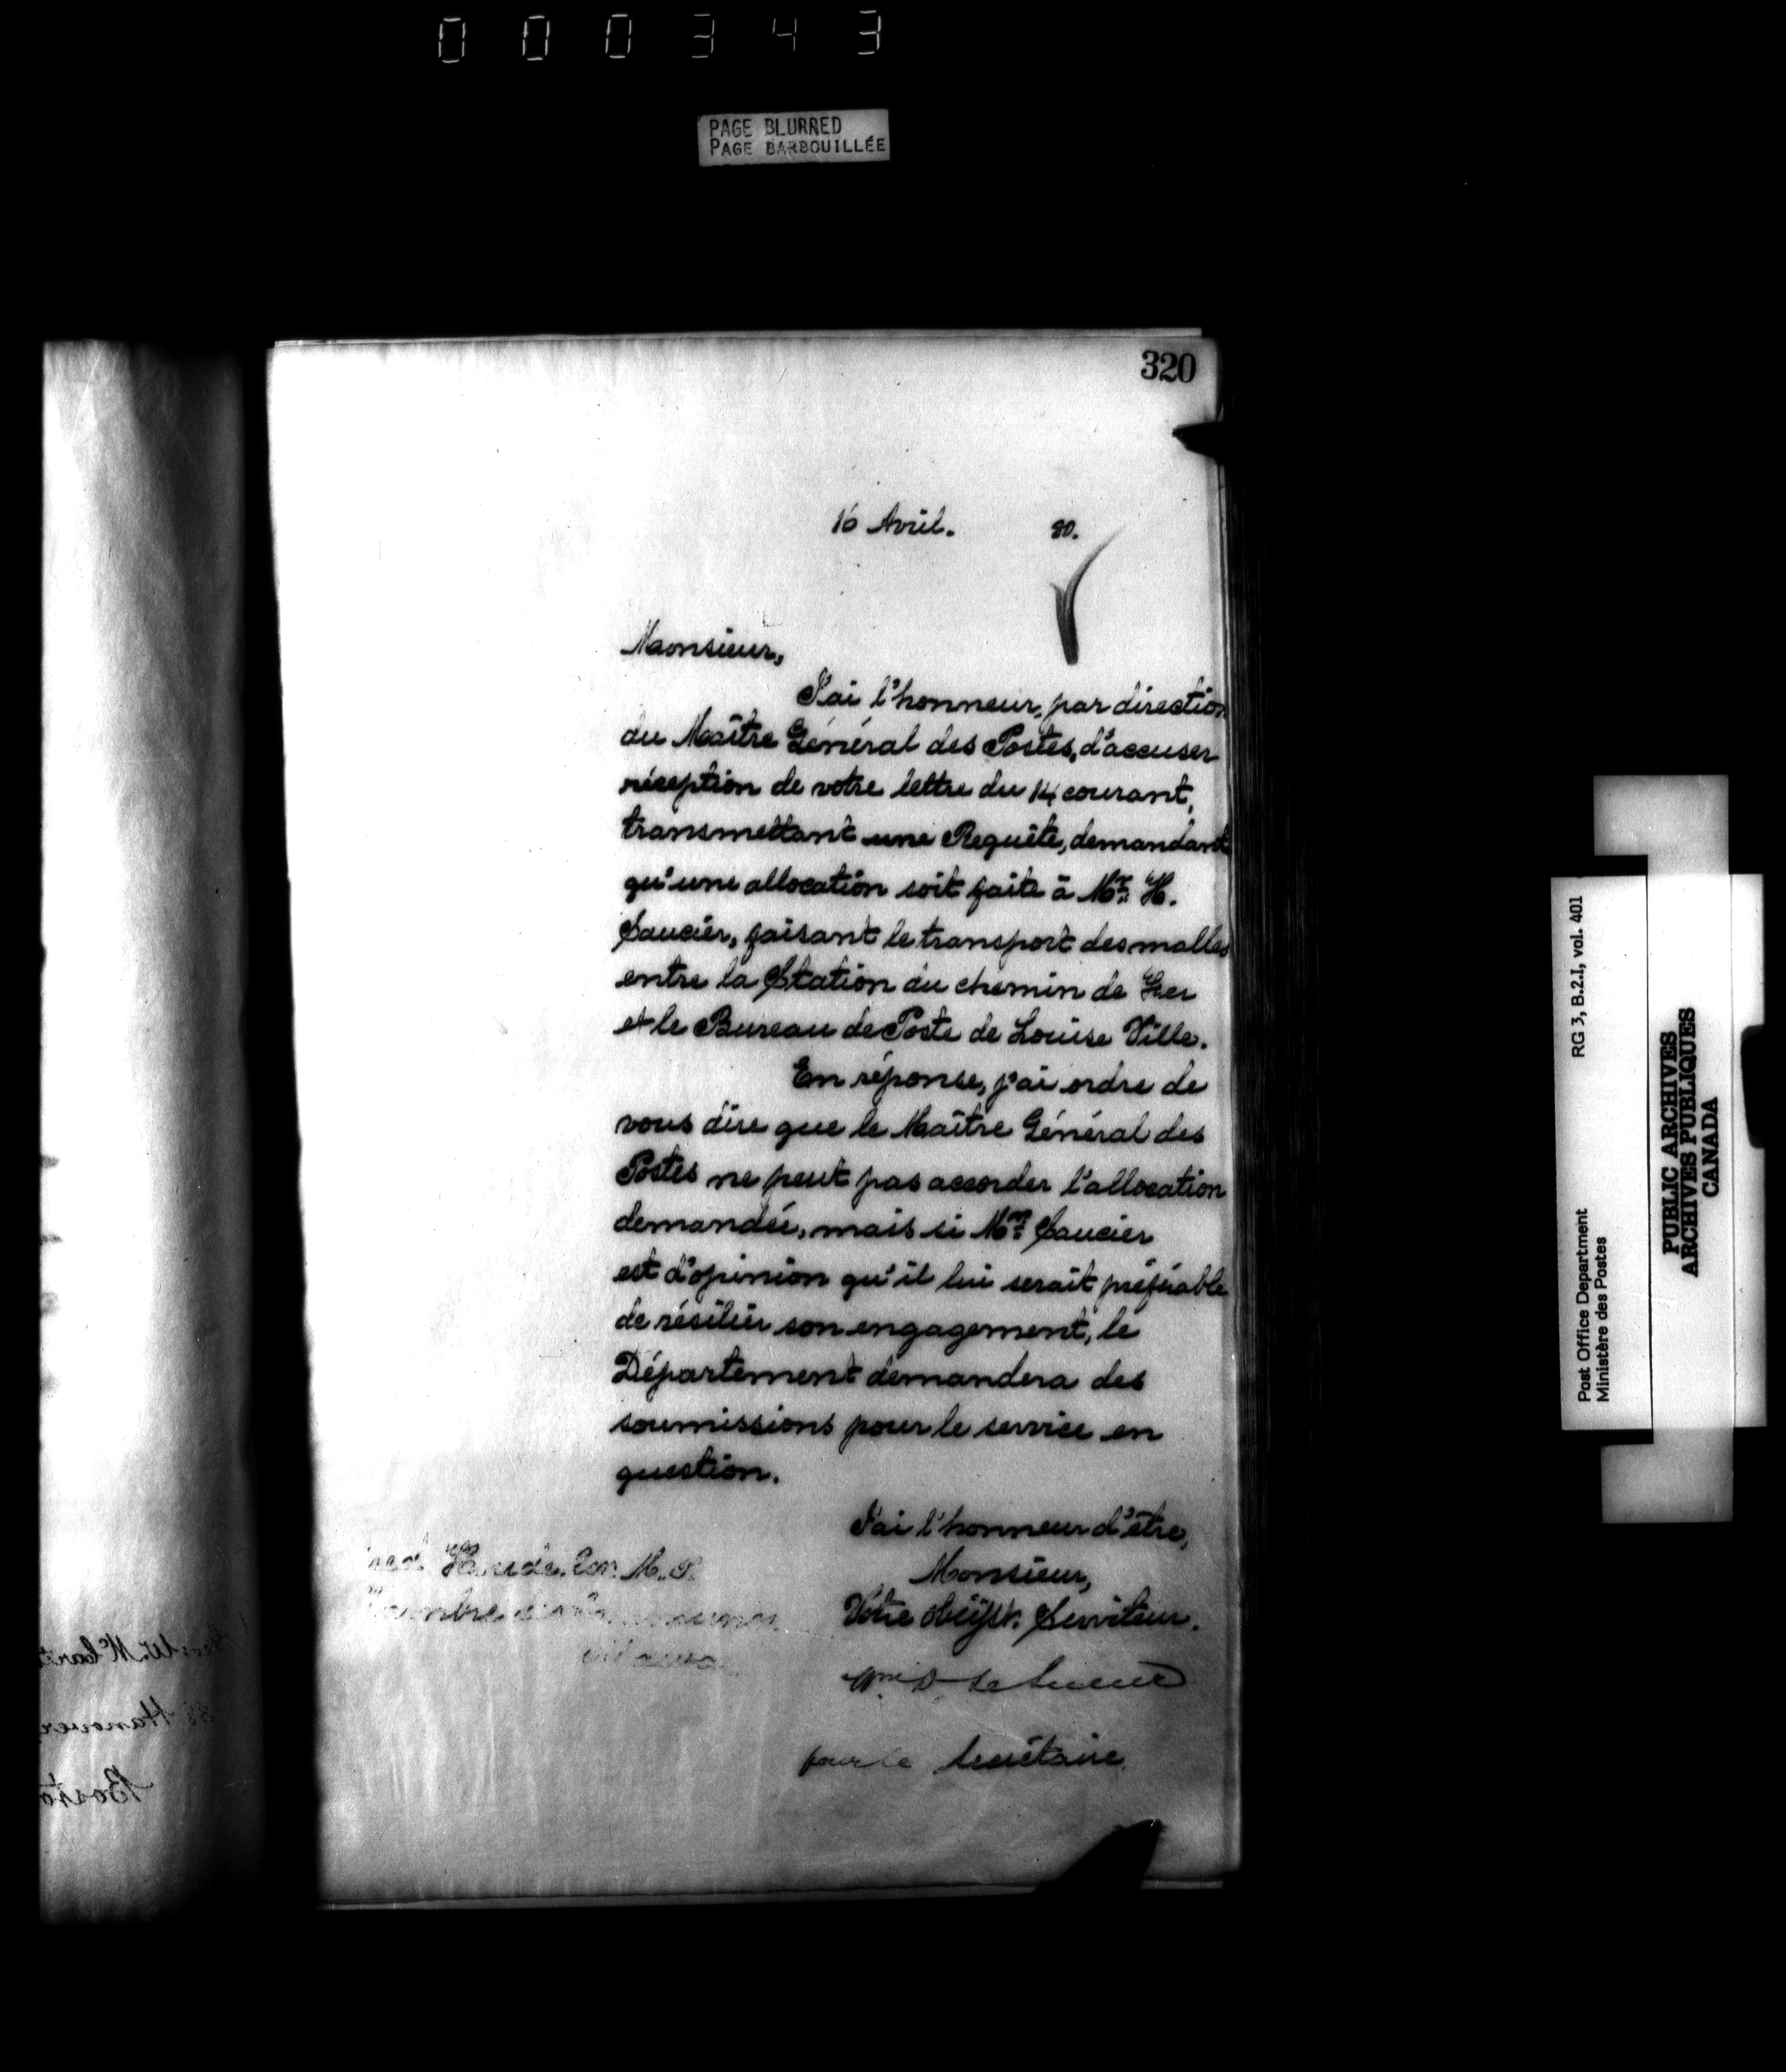 000343
PAGE BLURRED
PAGE BARBOUILLÉE
320
16 Avril. 80.
Monsieur,
J'ai l'honneur, par direction
du Maître Général des Postes, d'accuser
réception de votre lettre du 14 courant,
transmettant une Requête, demandant
qu'une allocation soit faite à Mr. H.
Saucier, faisant le transport des malles
entre la Station du chemin de Fer
et le Bureau de Poste de Louise Ville.
En réponse, j'ai ordre de
vous dire que le Maître Général des
Postes ne peut pas accorder l'allocation
demandée, mais si Mr. Saucier
est d'opinion qu'il lui serait préférable
de résilier son engagement, le
Département demandera des
soumissions pour le service en
question.
J'ai l'honneur d'être,
Monsieur,
Votre obéiss't. Serviteur.
Wm. D. LeSueur
pour le Secrétaire.
M. P.
W. McCart
Hanover
Bosto
RG 3, B.2.I, vol. 401
Post Office Department
Ministère des Postes
PUBLIC ARCHIVES
ARCHIVES PUBLIQUES
CANADA